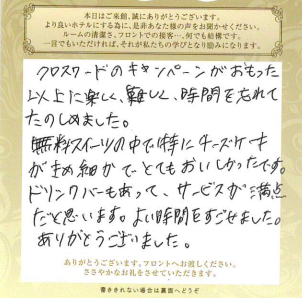 本日はご来館、誠にありがとうございます。
より良いホテルにする為に、是非あなた様の声をお聞かせください。
ルームの清潔さ、フロントでの接客…、何でも結構です。
一言でもいただければ、それが私たちの学びとなり励みになります。
クロスワードのキャンペーンがおもった
以上に楽しく、難しく、時間を忘れて
たのしめました。
無料スイーツの中で特にチーズケーキ
がきめ細かでとてもおいしかったです。
ドリンクバーもあって、サービスが満点
だと思います。よい時間をすごせました。
ありがとうございました。
ありがとうございます。フロントへお渡しください。
ささやかなお礼をさせていただきます。
書ききれない場合は裏面へどうぞ